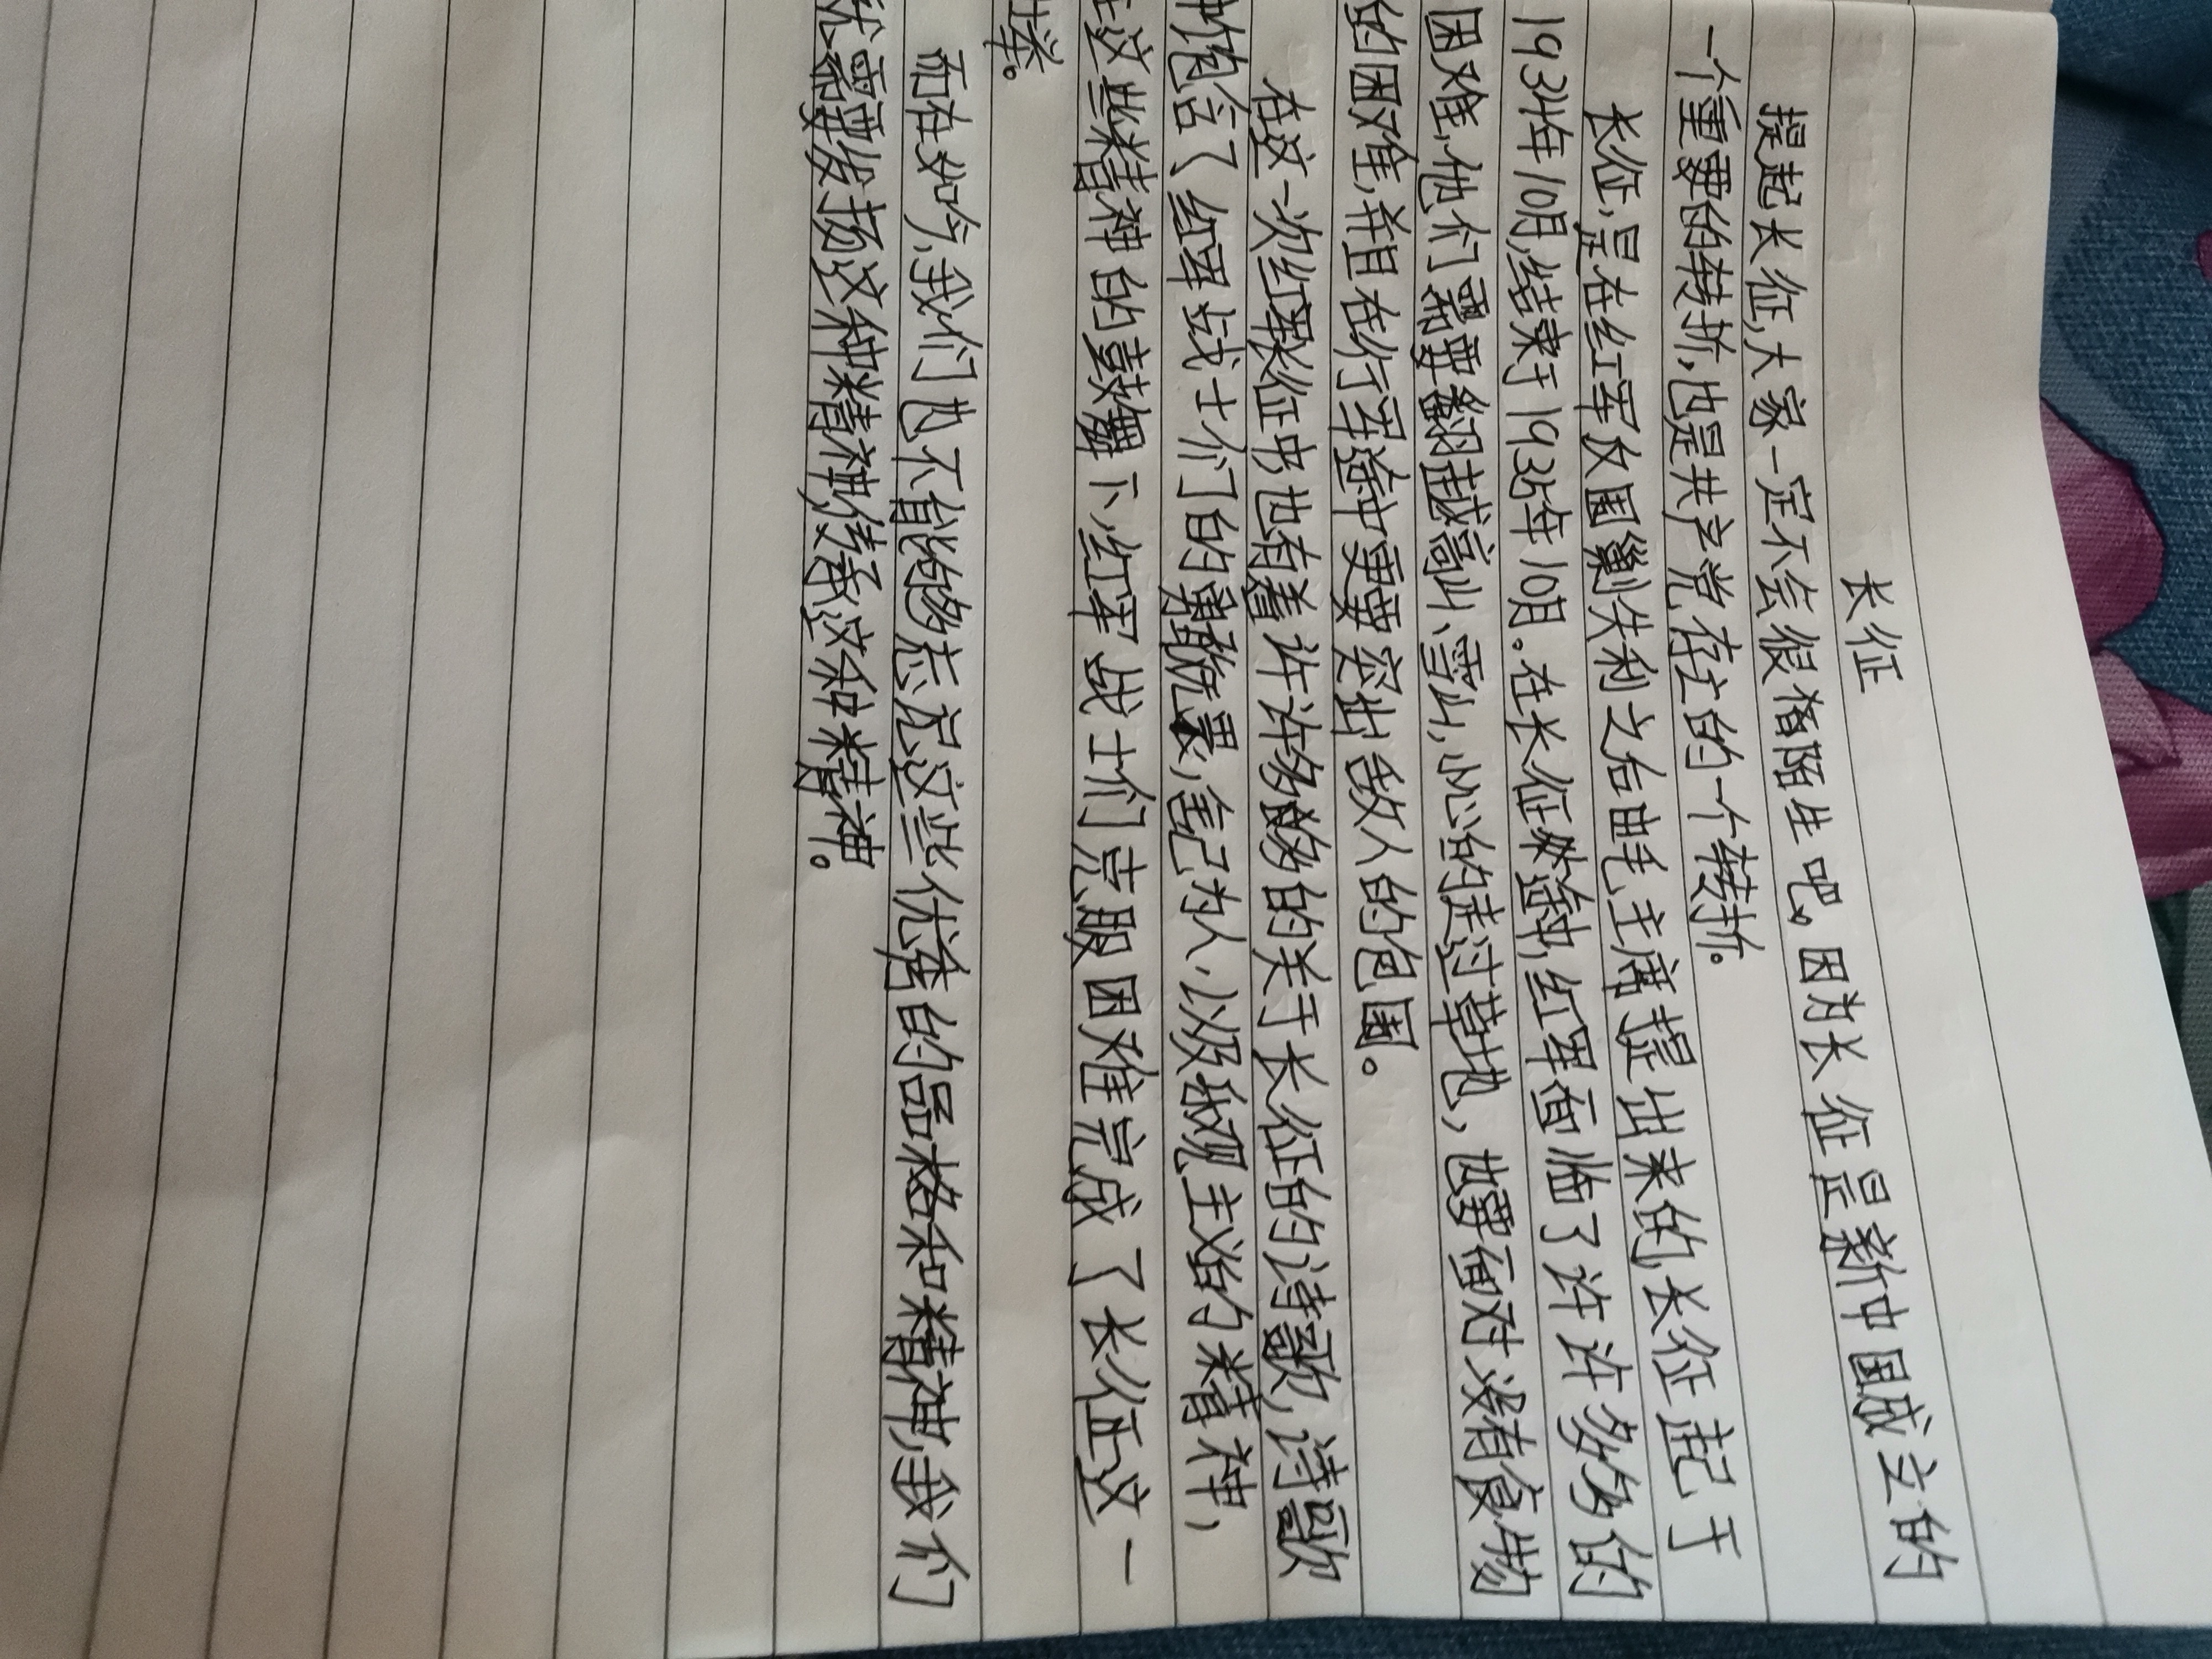 长征
提起长征,大家一定不会很陌生吧。因为长征是新中国成立的
一个重要的转折,也是共产党存在的一个转折。
长征,是在红军反围剿失利之后由毛主席提出来的,长征起于
1934年10月,结束于1936年10月。在长征旅途中,红军面临了许许多多的
困难,他们需要翻越高山、雪山,小心的走过草地,也要面对没有食物
的困难,并且在行军途中更要突出敌人的包围。
在这一次红军长征中,也有着许许多多的关于长征的诗歌,诗歌
中饱含了红军战士们的舍己为人,以及乐观主义的精神,
在这些精神的鼓舞下,红军战士们克服困难完成了长征这一
壮举。
而在如今,我们也不能够忘记这些优秀的品格和精神,我们
就需要发扬这种精神,传承这种精神。